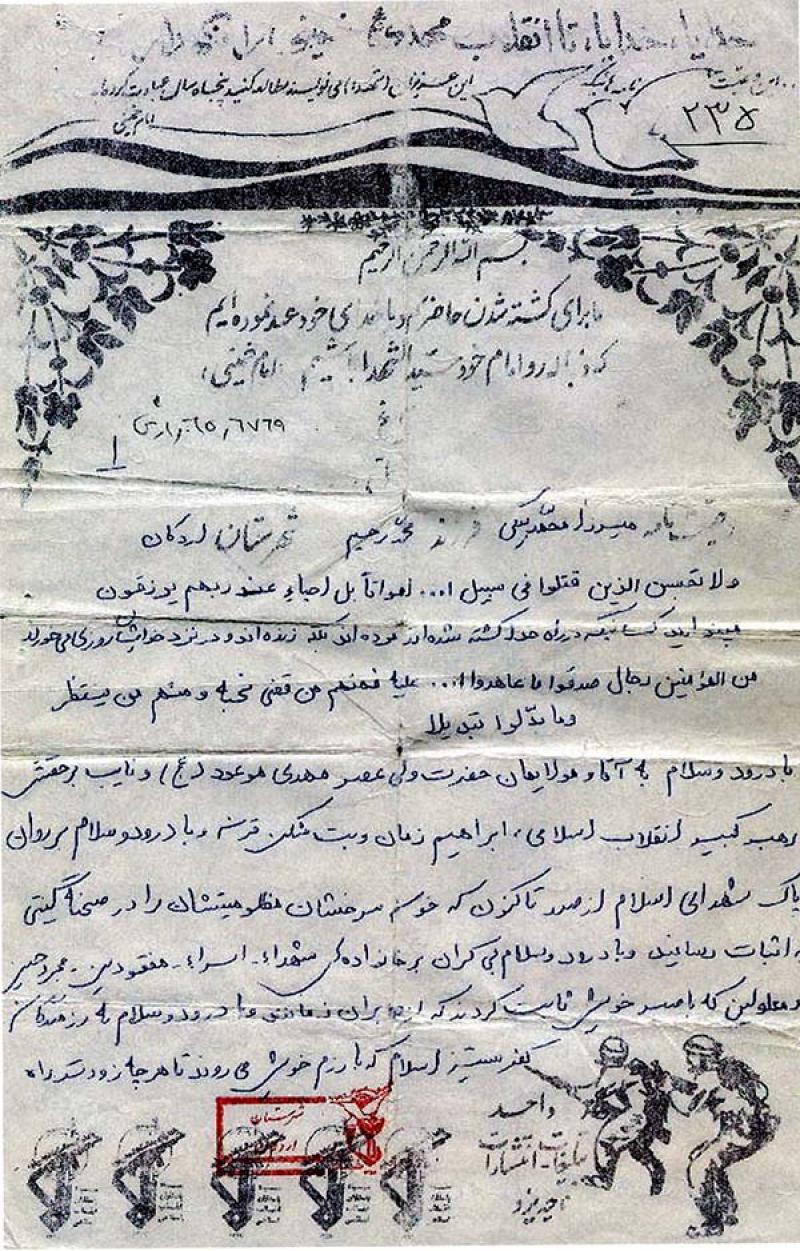 خدایا، خدایا، تا انقلاب مهدی
این وصیت نامه هائیکه
این عزیزان (شهداء) می نویسند مطالعه کنید پنجاه سال عبادت کرده اید
امام خمینی
۲۳۵
بسم الله الرحمن الرحیم
ما برای کشته شدن حاضریم و با خدای خود عهد نموده ایم
که دنباله رو امام خود سیدالشهدا باشیم (امام خمینی)
۱
وصیت نامه میرزا محمد فرزند محمد رحیم شهرستان اردکان
ولا تحسبن الذین قتلوا فی سبیل ا... امواتاً بل احیاءِ عند ربهم یرزقون
مپندارید کسانیکه در راه خدا کشته شده اند مرده اند بلکه زنده اند و در نزد خدایشان روزی می خورند
من المؤمنین رجال صدقوا ما عاهدوا ا... علیه فمنهم من قضی نحبه و منهم من ینتظر
و ما بدّلوا تبدیلا
با درود و سلام به آقا و مولایمان حضرت ولی عصر مهدی موعود (عج) و نایب برحقش
رهبر کبیر انقلاب اسلامی، ابراهیم زمان و بت شکن قرن و با درود و سلام بر روان
پاک شهدای اسلام از صدر تاکنون که خون سرخشان مظلومیتشان را در صحنه گیتی
به اثبات رسانید و با درود و سلام بی کران بر خانواده ی شهداء - اسراء - مفقودین - مجروحین
و معلولین که با صبر خویش ثابت کردند که زمانند و با درود و سلام به رزمندگان
کفر ستیز اسلام که با رزم خویش می روند تا هر چه زودتر راه
شهرستان
اردکان
واحد
تبلیغات - انتشارات
ناحیه یزد